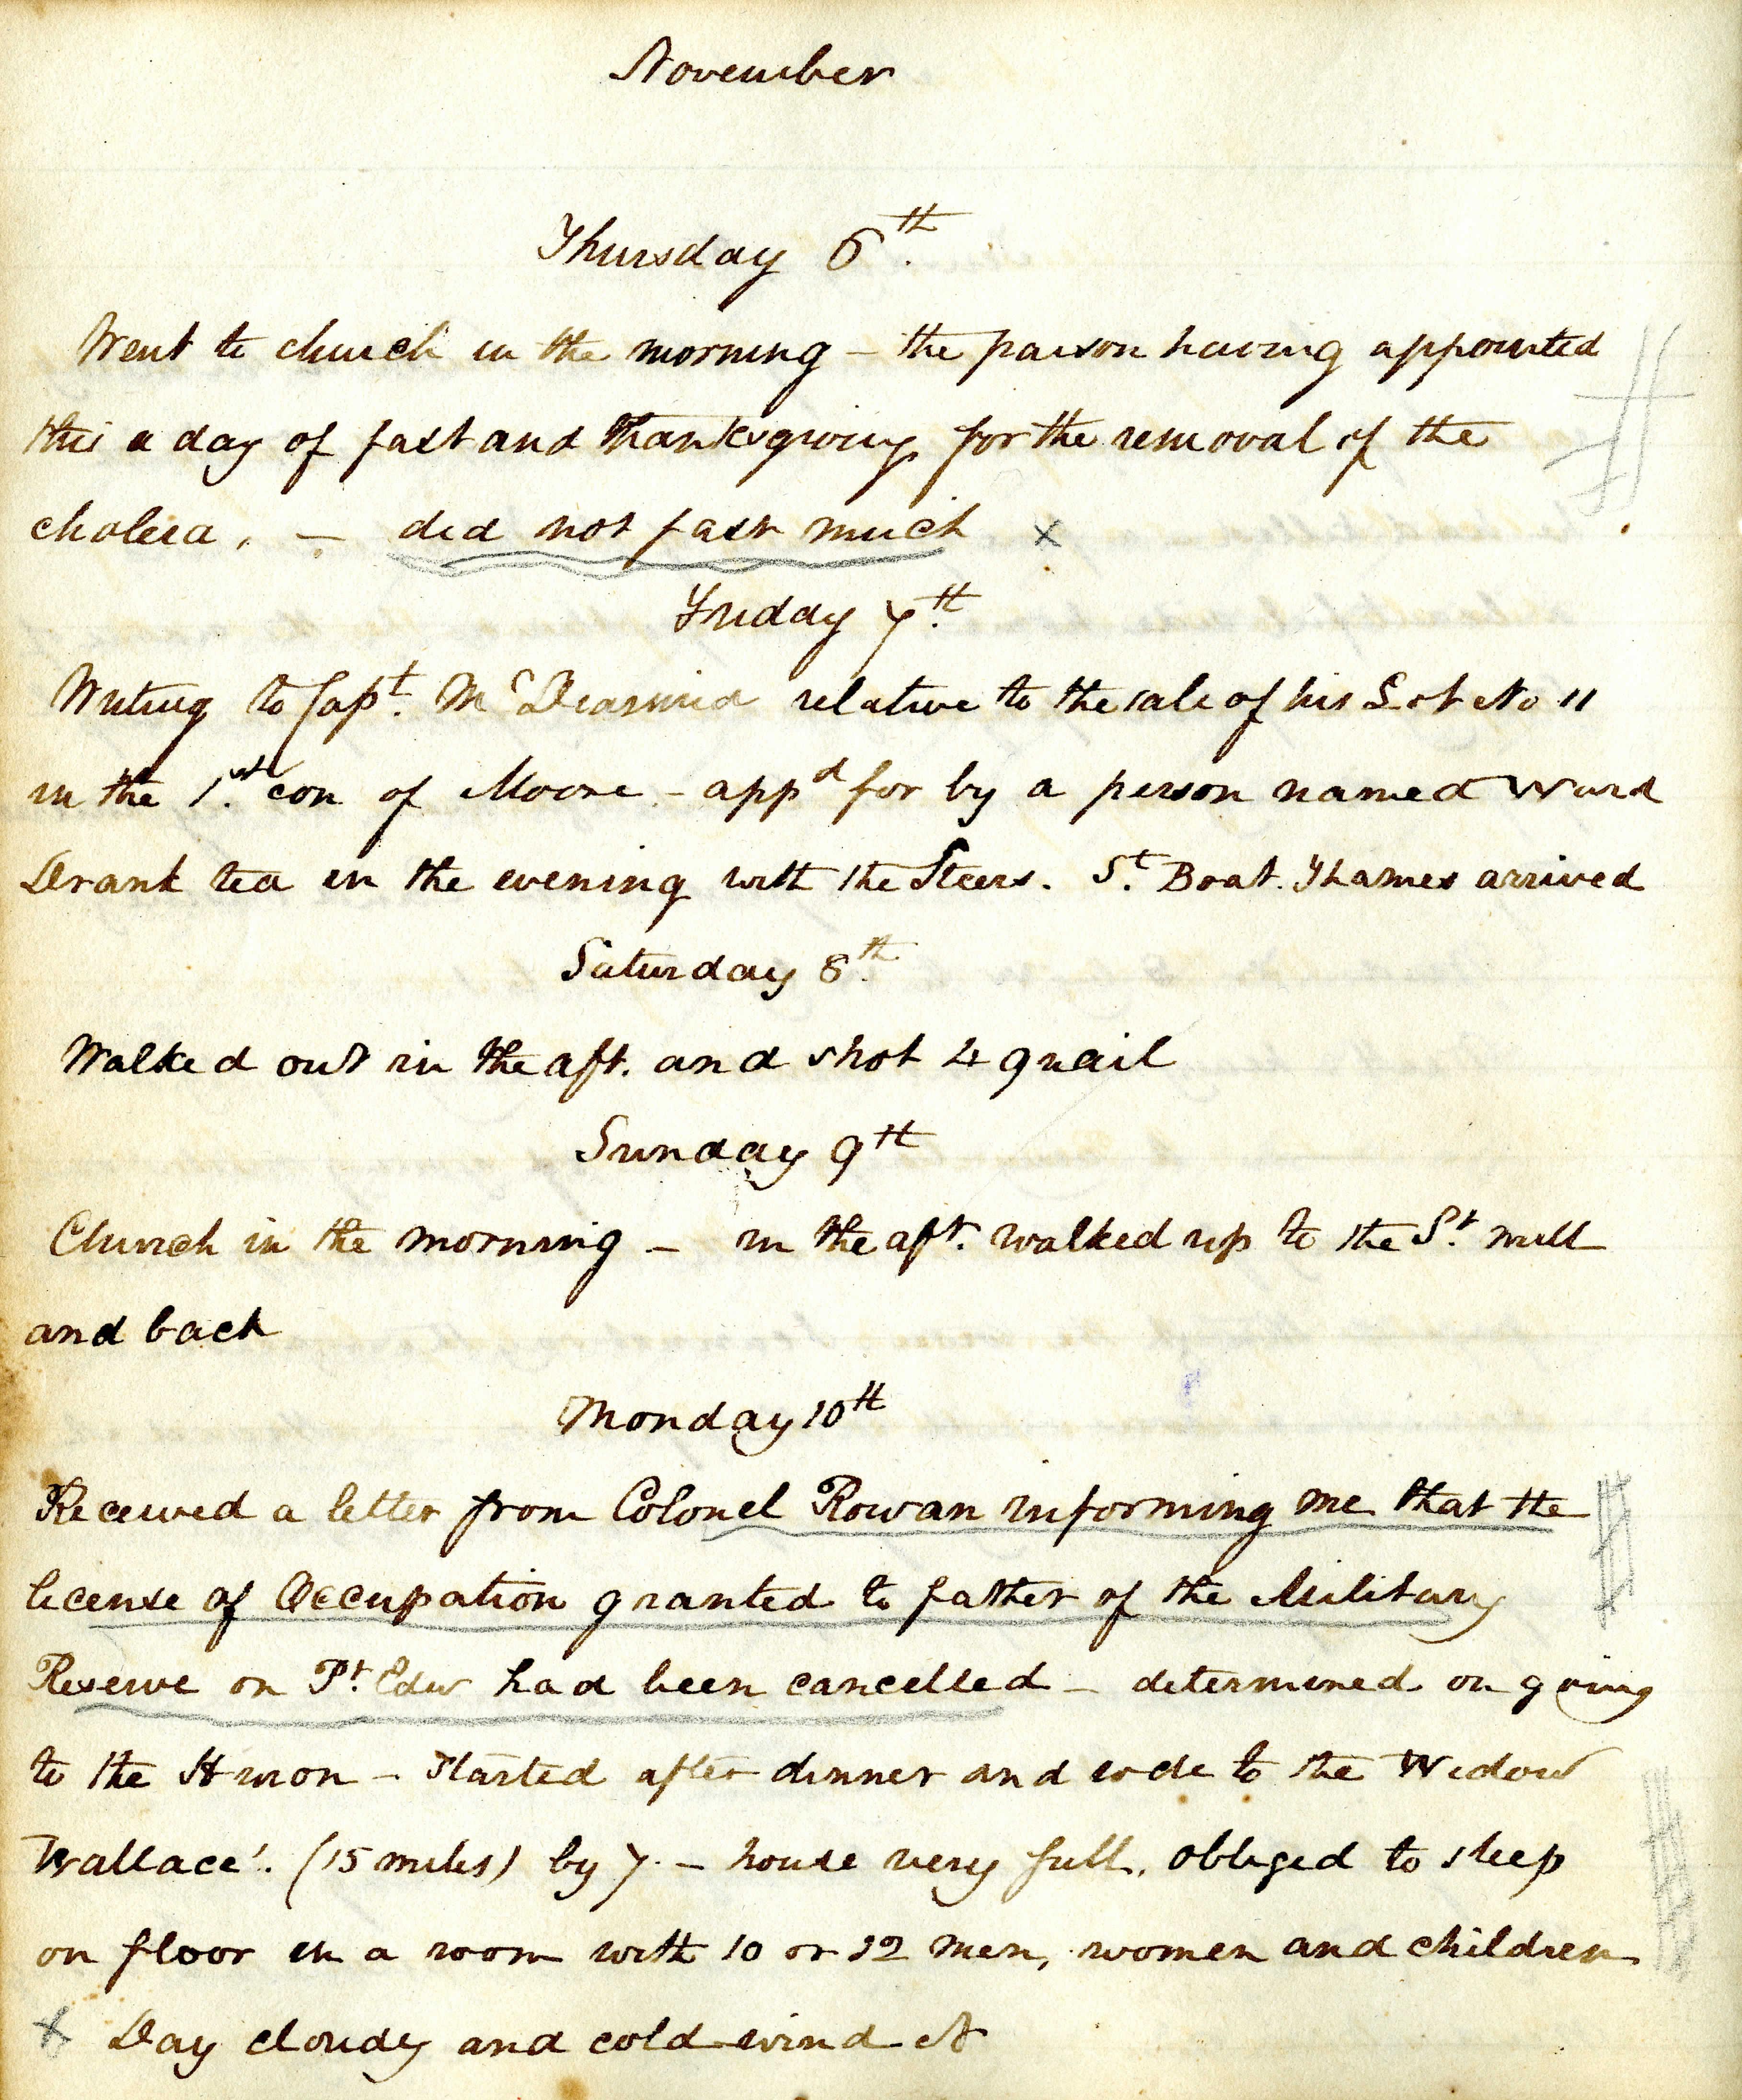 November
Thursday 6th.
Went to church in the morning – the parson having appointed
this a day of fast and thanksgiving for the removal of the
cholera. – did not fast much x
Friday 7th.
Writing to Capt. Mc relative to the sale of his Lot No 11
in the 1st. con of Moore – appd for by a person named Ward
Drank tea in the evening with the Steers. St. Boat. Thames arrived
Saturday 8th.
Walked out in the aft. and shot 4 quail
Sunday 9th
Church in the morning – in the aft. walked up to the St. mill
and back
Monday 10th
Received a letter from Colonel Rowan informing me that the
license of Occupation granted to father of the Military
Reserve on Pt. Edw had been cancelled – determined on going
to the Huron – Started after dinner and rode to the Widow
Wallace'. (15 miles) by 7. – house very full, obliged to sleep
on floor in a room with 10 or 12 men, women and children
x Day cloudy and cold wind N